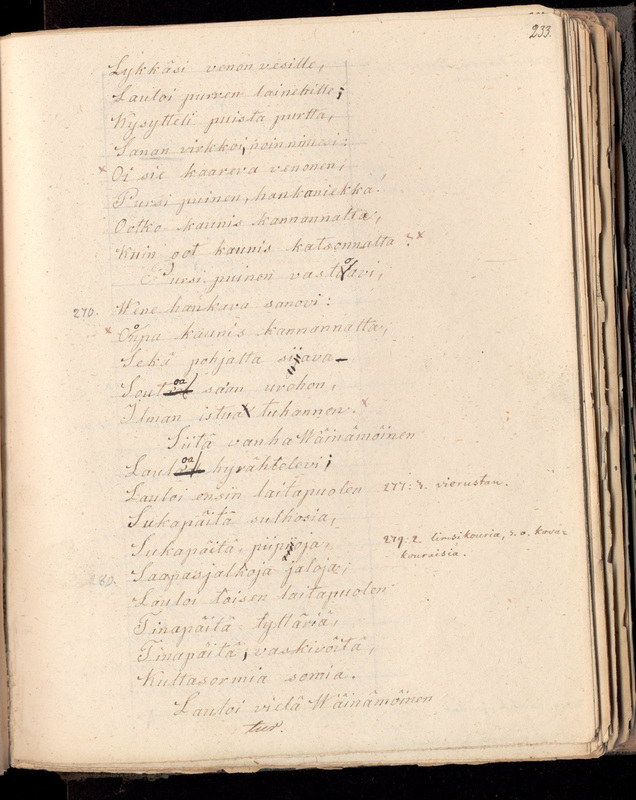 233.
Lykkäsi venon vesille,
Lauloi purren lainehille;
Kysytteli puista purtta,
Sanan virkkoi, noin nimesi:
Oi sie kaareva venonen,
Pursi puinen, hankaniekka!
Ootko kaunis kannannalta,
Kuin oot kaunis katsonnalta?
Pursi puinen vastoavi,
270. Wene hankava sanovi:
Onpa kaunis kannannalta,
Sekä pohjalta siiava
Soutoa sa'an urohon,
Ilman istua tuhannen.
Siitä vanha Wäinämöinen
Lauloa hyrähtelevi;
Lauloi ensin laitapuolen 277: r. vierustan.
Sukapäitä sulhosia,
Sukapäitä, piipioja, 279: 2. limsikouria, r. o. kova-
kouraisia.
280. Saapasjalkoja jaloja;
Lauloi toisen laitapuolen
Tinapäitä tyttäriä,
Tinapäitä, vaskivöitä,
Kultasormia somia.
Lauloi vielä Wäinämöinen
tur.